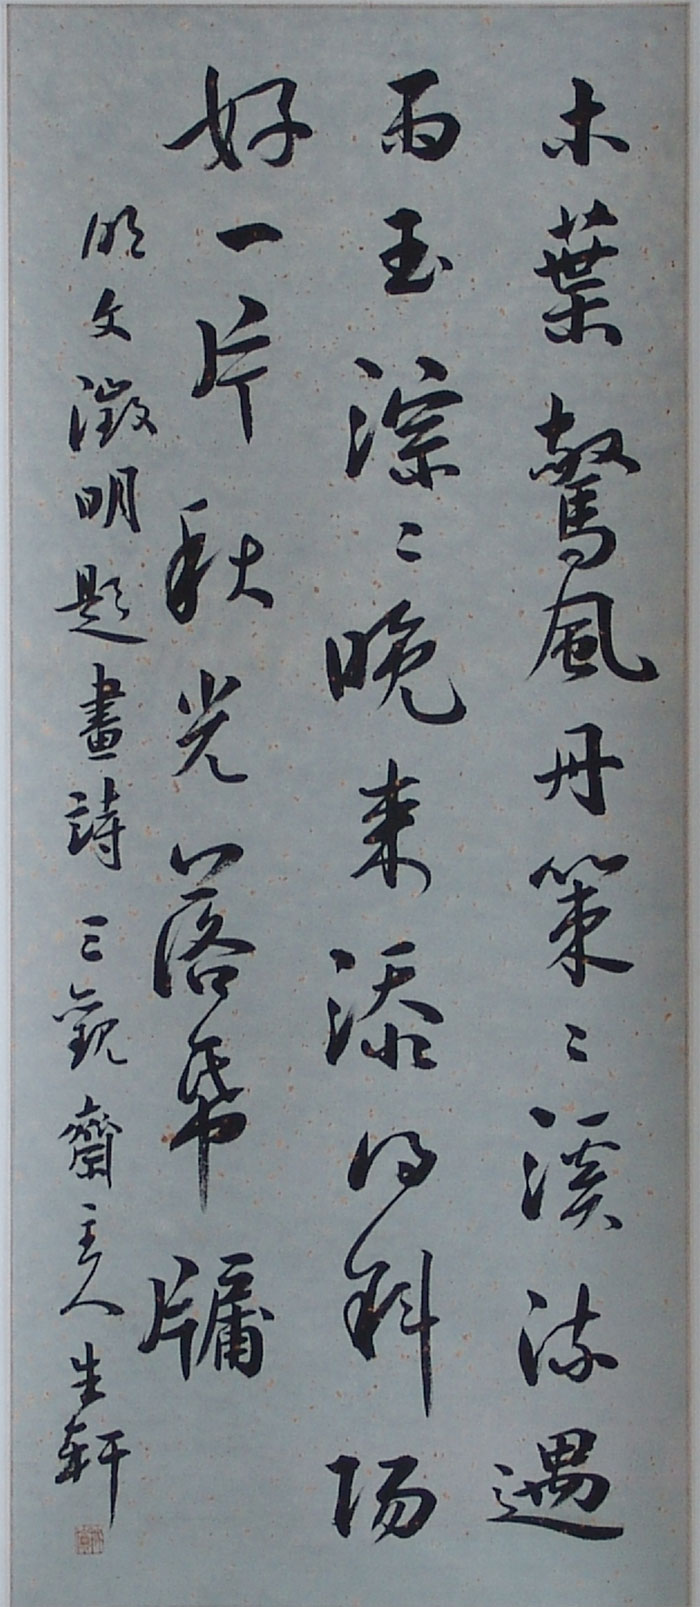 木葉驚風丹策〻溪流遇
雨玉淙〻晚來添得斜陽
好一片秋光落帋牖
明文澂明題畫詩 三觀齋主人生軒